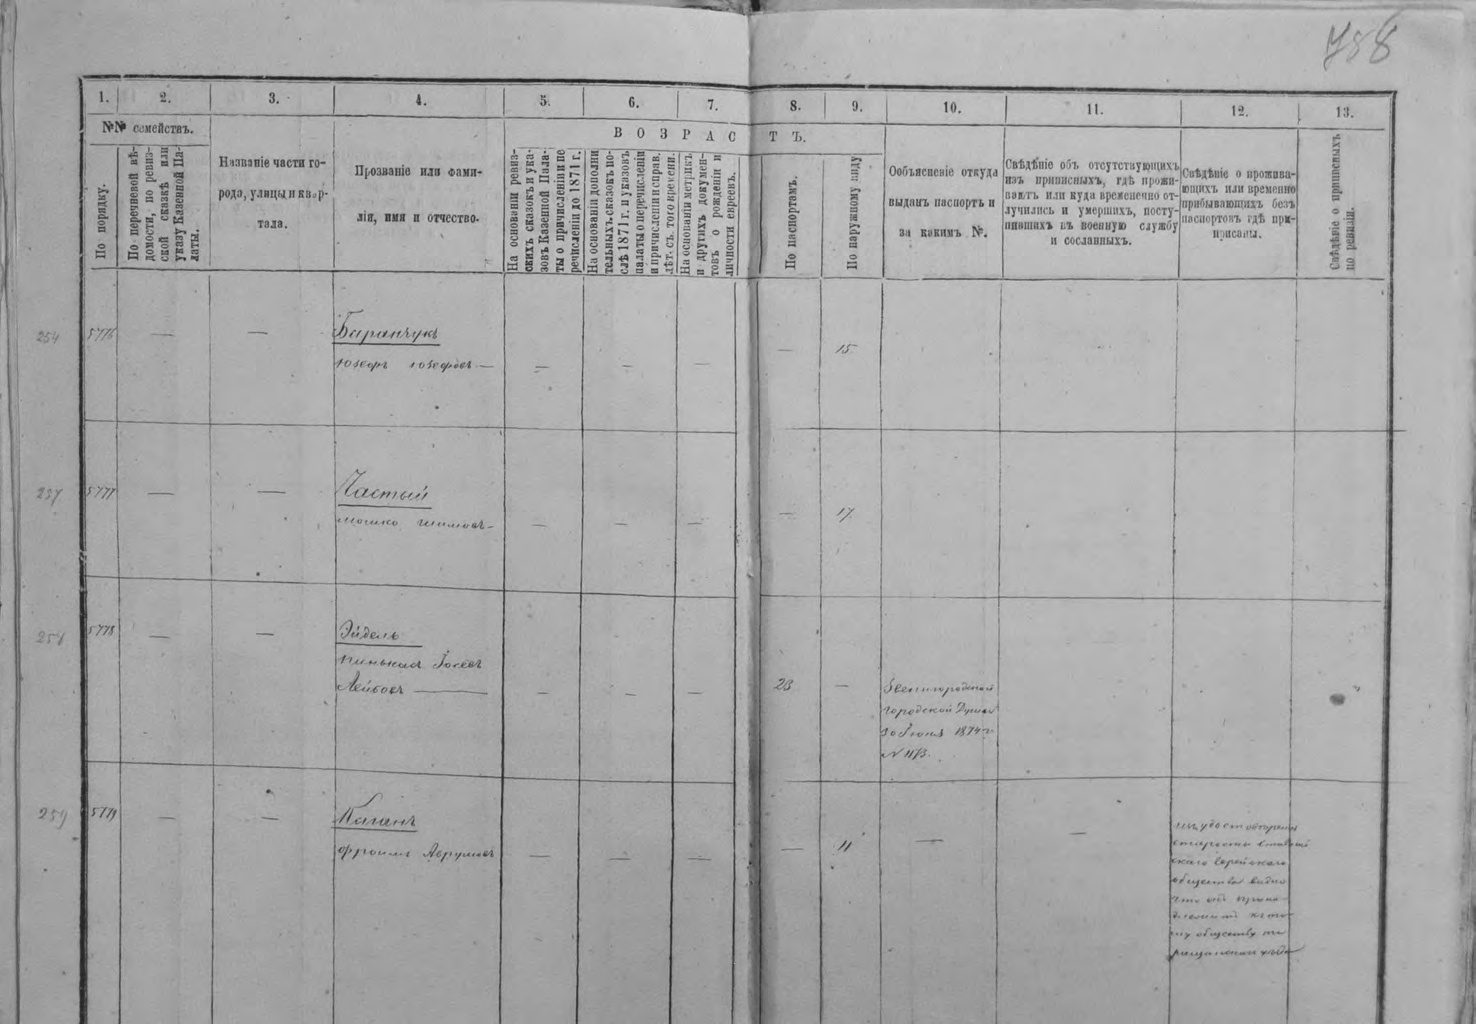 788
1. 2. 3. 4. 5. 6. 7. 8. 9. 10. 11. 12. 13.
№№ семействъ.
По порядку.
По перечневой вѣ-
домости, по ревиз-
ской сказкѣ или
указу Казенной Па-
латы.
Названіе части го-
рода, улицы и квар-
тала.
Прозваніе или фами-
лія, имя и отчество.
ВОЗРАСТЪ.
На основаніи ревиз-
скихъ сказокъ и ука-
зовъ Казенной Пала-
ты о причисленіи и пе
речисленіи до 1871 г.
На основаніи дополни
тельныхъ сказокъ по-
слѣ 1871 г. и указовъ
палаты о перечисленіи
и причисленіи и справ.
лѣт. съ того времени.
На основаніи метрикъ
и другихъ докумен-
товъ о рожденіи и
личности евреевъ.
По паспортамъ.
По наружному виду
Объясненіе откуда
выданъ паспортъ и
за какимъ №.
Свѣдѣніе объ отсутствующихъ
изъ приписныхъ, гдѣ прожи-
ваютъ или куда временно от-
лучились и умершихъ, посту-
пившихъ въ военную службу
и сосланныхъ.
Свѣдѣніе о прожива-
ющихъ или временно
прибывающихъ безъ
паспортовъ гдѣ при-
писаны.
Свѣдѣніе о приписныхъ
по ревизіи.
254 5776 — — Баранчукъ
Юзефъ Юзефовъ — — — — — 15
257 5777 — — Частый
Мошко Шимовъ — — — — — 17
258 5778 — — Эйдель
Пинькасъ Іосевъ
Лейбовъ — — — — 23 —
Звенигородской
Городской Думы
30 Іюня 1874 г.
№ 1173.
259 5779 — — Каганъ
Фроимъ Аврумовъ — — — — 11 — —
скаго Еврейскаго
общества видно
что онъ
обществу